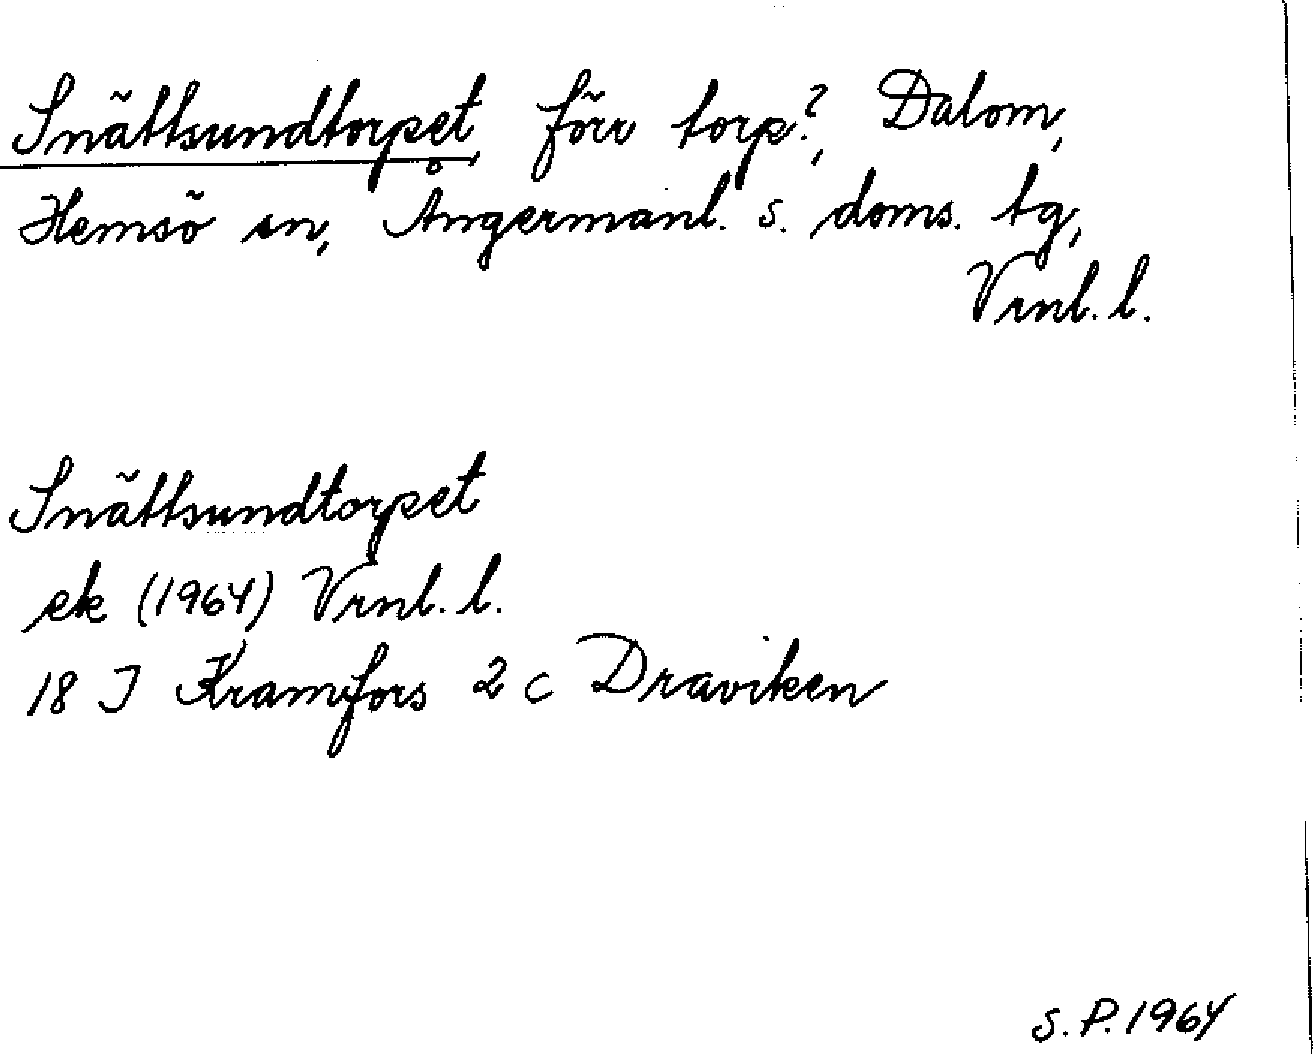 Snättsundtorpet, förr torp?, Dalom,
Hemsö sn, Ångermanl. s. doms. tg,
Vrnl. l.
Snättsundtorpet
ek (1964) Vrnl. l.
18 J Kramfors 2 c Draviken
S. P. 1964